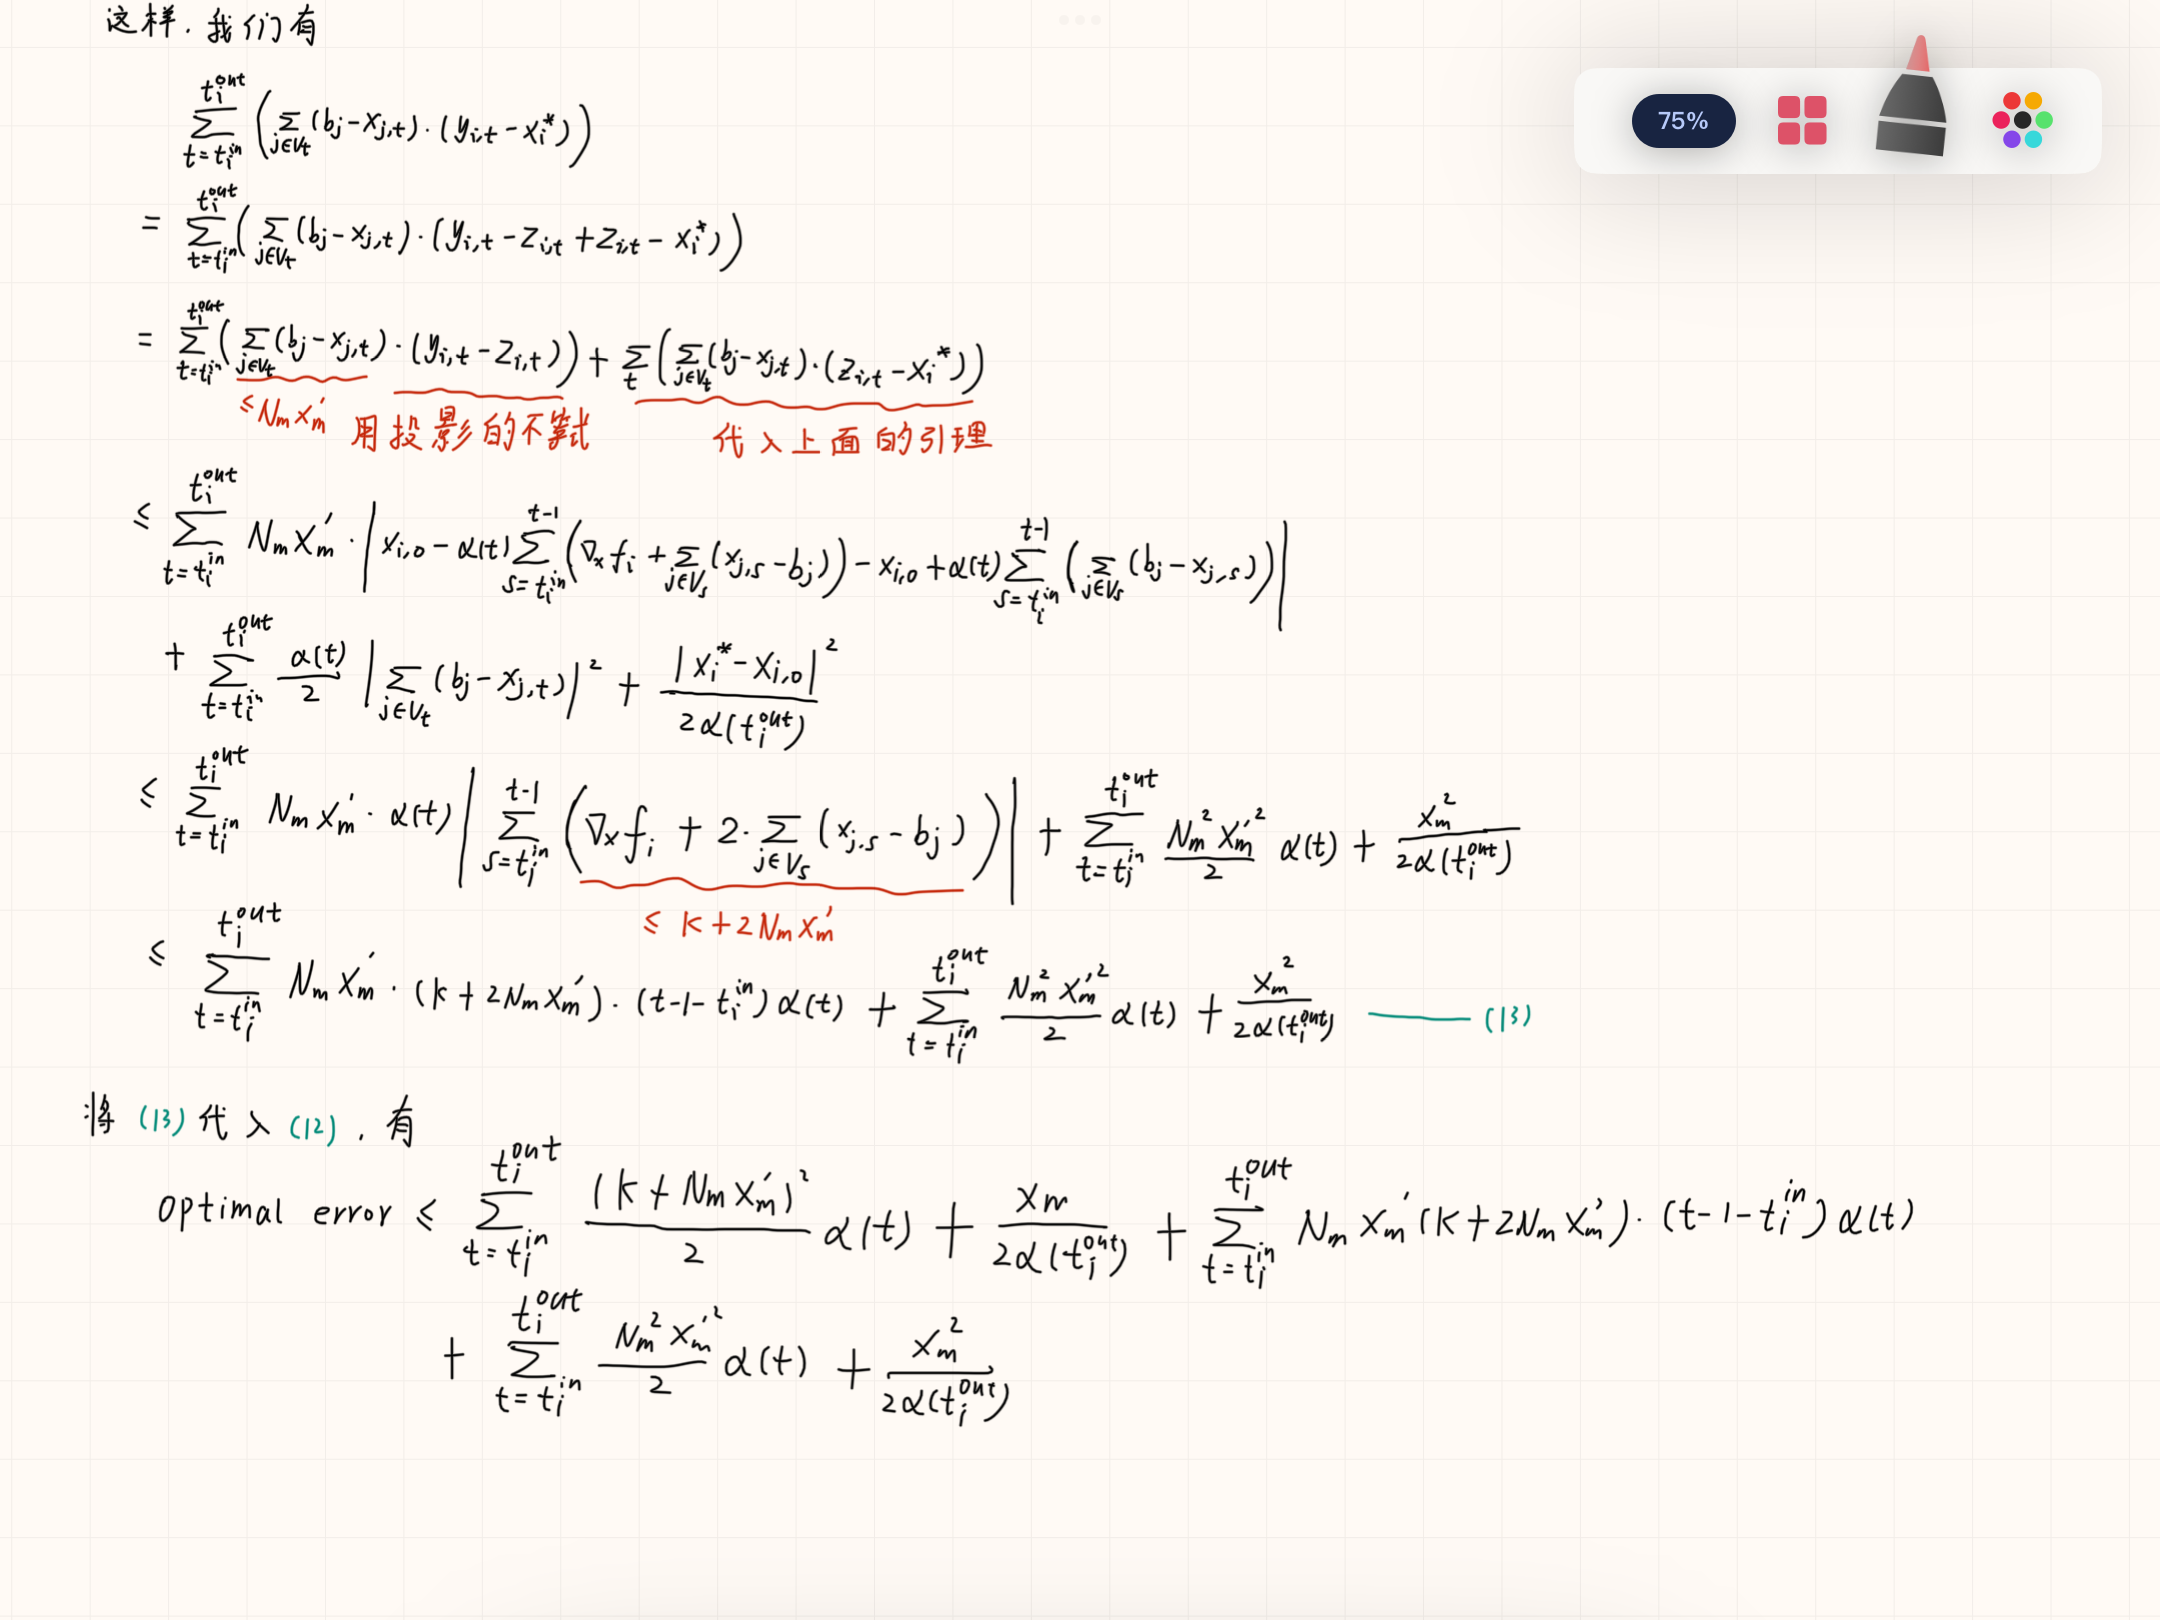 这样，我们有
75%
$\sum_{t=t_i^{in}}^{t_i^{out}} \left( \sum_{j \in V_t} (b_j - x_{j,t}) \cdot (y_{i,t} - x_i^*) \right)$
$= \sum_{t=t_i^{in}}^{t_i^{out}} \left( \sum_{j \in V_t} (b_j - x_{j,t}) \cdot (y_{i,t} - z_{i,t} + z_{i,t} - x_i^*) \right)$
$= \sum_{t=t_i^{in}}^{t_i^{out}} \left( \sum_{j \in V_t} (b_j - x_{j,t}) \cdot (y_{i,t} - z_{i,t}) \right) + \sum_t \left( \sum_{j \in V_t} (b_j - x_{j,t}) \cdot (z_{i,t} - x_i^*) \right)$
$\leq N_m x_m'$ 用投影的不等式 代入上面的引理
$\leq \sum_{t=t_i^{in}}^{t_i^{out}} N_m x_m' \cdot \left| x_{i,0} - \alpha(t) \sum_{s=t_i^{in}}^{t-1} \left( \nabla_x f_i + \sum_{j \in V_s} (x_{j,s} - b_j) \right) - x_{i,0} + \alpha(t) \sum_{s=t_i^{in}}^{t-1} \left( \sum_{j \in V_s} (b_j - x_{j,s}) \right) \right|$
$+ \sum_{t=t_i^{in}}^{t_i^{out}} \frac{\alpha(t)}{2} \left| \sum_{j \in V_t} (b_j - x_{j,t}) \right|^2 + \frac{|x_i^* - x_{i,0}|^2}{2\alpha(t_i^{out})}$
$\leq \sum_{t=t_i^{in}}^{t_i^{out}} N_m x_m' \cdot \alpha(t) \left| \sum_{s=t_i^{in}}^{t-1} \left( \nabla_x f_i + 2 \cdot \sum_{j \in V_s} (x_{j,s} - b_j) \right) \right| + \sum_{t=t_i^{in}}^{t_i^{out}} \frac{N_m^2 x_m'^2}{2} \alpha(t) + \frac{x_m^2}{2\alpha(t_i^{out})}$
$\leq K + 2N_m x_m'$
$\leq \sum_{t=t_i^{in}}^{t_i^{out}} N_m x_m' \cdot (K + 2N_m x_m') \cdot (t-1-t_i^{in}) \alpha(t) + \sum_{t=t_i^{in}}^{t_i^{out}} \frac{N_m^2 x_m'^2}{2} \alpha(t) + \frac{x_m^2}{2\alpha(t_i^{out})}$ —— (13)
将 (13) 代入 (12)，有
Optimal error $\leq \sum_{t=t_i^{in}}^{t_i^{out}} \frac{(K + N_m x_m')^2}{2} \alpha(t) + \frac{x_m}{2\alpha(t_i^{out})} + \sum_{t=t_i^{in}}^{t_i^{out}} N_m x_m' (K + 2N_m x_m') \cdot (t-1-t_i^{in}) \alpha(t)$
$+ \sum_{t=t_i^{in}}^{t_i^{out}} \frac{N_m^2 x_m'^2}{2} \alpha(t) + \frac{x_m^2}{2\alpha(t_i^{out})}$